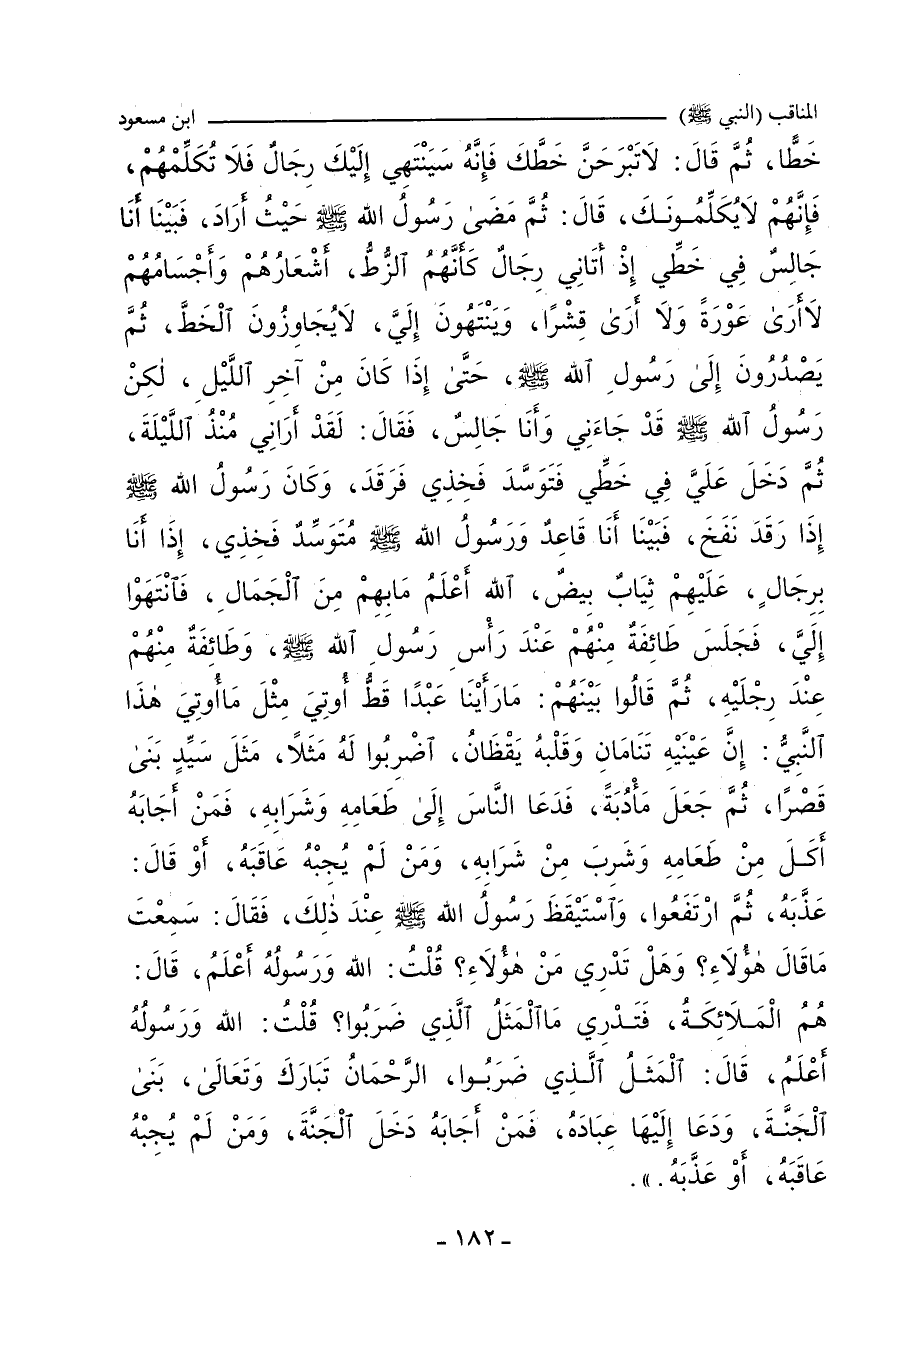 المناقب (النبي ﷺ) ابن مسعود
خَطًّا، ثُمَّ قَالَ: لَاتَبْرَحَنَّ خَطَّكَ فَإِنَّهُ سَيَنْتَهِي إِلَيْكَ رِجَالٌ فَلَا تُكَلِّمْهُمْ،
فَإِنَّهُمْ لَايُكَلِّمُونَكَ، قَالَ: ثُمَّ مَضَىٰ رَسُولُ الله ﷺ حَيْثُ أَرَادَ، فَبَيْنَا أَنَا
جَالِسٌ فِي خَطِّي إِذْ أَتَانِي رِجَالٌ كَأَنَّهُمُ ٱلزُّطُّ، أَشْعَارُهُمْ وَأَجْسَامُهُمْ
لَاأَرَىٰ عَوْرَةً وَلَا أَرَىٰ قِشْرًا، وَيَنْتَهُونَ إِلَيَّ، لَايُجَاوِزُونَ ٱلْخَطَّ، ثُمَّ
يَصْدُرُونَ إِلَىٰ رَسُولِ ٱلله ﷺ، حَتَّىٰ إِذَا كَانَ مِنْ آخِرِ ٱللَّيْلِ، لٰكِنْ
رَسُولُ ٱلله ﷺ قَدْ جَاءَنِي وَأَنَا جَالِسٌ، فَقَالَ: لَقَدْ أَرَانِي مُنْذُ ٱللَّيْلَةَ،
ثُمَّ دَخَلَ عَلَيَّ فِي خَطِّي فَتَوَسَّدَ فَخِذِي فَرَقَدَ، وَكَانَ رَسُولُ الله ﷺ
إِذَا رَقَدَ نَفَخَ، فَبَيْنَا أَنَا قَاعِدٌ وَرَسُولُ الله ﷺ مُتَوَسِّدٌ فَخِذِي، إِذَا أَنَا
بِرِجَالٍ، عَلَيْهِمْ ثِيَابٌ بِيضٌ، ٱلله أَعْلَمُ مَابِهِمْ مِنَ ٱلْجَمَالِ، فَٱنْتَهَوْا
إِلَيَّ، فَجَلَسَ طَائِفَةٌ مِنْهُمْ عَنْدَ رَأْسِ رَسُولِ ٱلله ﷺ، وَطَائِفَةٌ مِنْهُمْ
عِنْدَ رِجْلَيْهِ، ثُمَّ قَالُوا بَيْنَهُمْ: مَارَأَيْنَا عَبْدًا قَطُّ أُوتِيَ مِثْلَ مَاأُوتِيَ هٰذَا
ٱلنَّبِيُّ: إِنَّ عَيْنَيْهِ تَنَامَانِ وَقَلْبهُ يَقْظَانُ، ٱضْرِبُوا لَهُ مَثَلًا، مَثَلَ سَيِّدٍ بَنَىٰ
قَصْرًا، ثُمَّ جَعَلَ مَأْدُبَةً، فَدَعَا النَّاسَ إِلَىٰ طَعَامِهِ وَشَرَابِهِ، فَمَنْ أَجَابَهُ
أَكَلَ مِنْ طَعَامِهِ وَشَرِبَ مِنْ شَرَابِهِ، وَمَنْ لَمْ يُجِبْهُ عَاقَبَهُ، أَوْ قَالَ:
عَذَّبَهُ، ثُمَّ ارْتَفَعُوا، وَٱسْتَيْقَظَ رَسُولُ الله ﷺ عِنْدَ ذٰلِكَ، فَقَالَ: سَمِعْتَ
مَاقَالَ هٰؤُلَاءِ؟ وَهَلْ تَدْرِي مَنْ هٰؤُلَاءِ؟ قُلْتُ: الله وَرَسُولُهُ أَعْلَمُ، قَالَ:
هُمُ الْمَلَائِكَةُ، فَتَدْرِي مَاٱلْمَثَلُ ٱلَّذِي ضَرَبُوا؟ قُلْتُ: الله وَرَسُولُهُ
أَعْلَمُ، قَالَ: ٱلْمَثَلُ ٱلَّذِي ضَرَبُوا، الرَّحْمَانُ تَبَارَكَ وَتَعَالَىٰ، بَنَىٰ
ٱلْجَنَّةَ، وَدَعَا إِلَيْهَا عِبَادَهُ، فَمَنْ أَجَابَهُ دَخَلَ ٱلْجَنَّةَ، وَمَنْ لَمْ يُجِبْهُ
عَاقَبَهُ، أَوْ عَذَّبَهُ.».
- ١٨٢ -